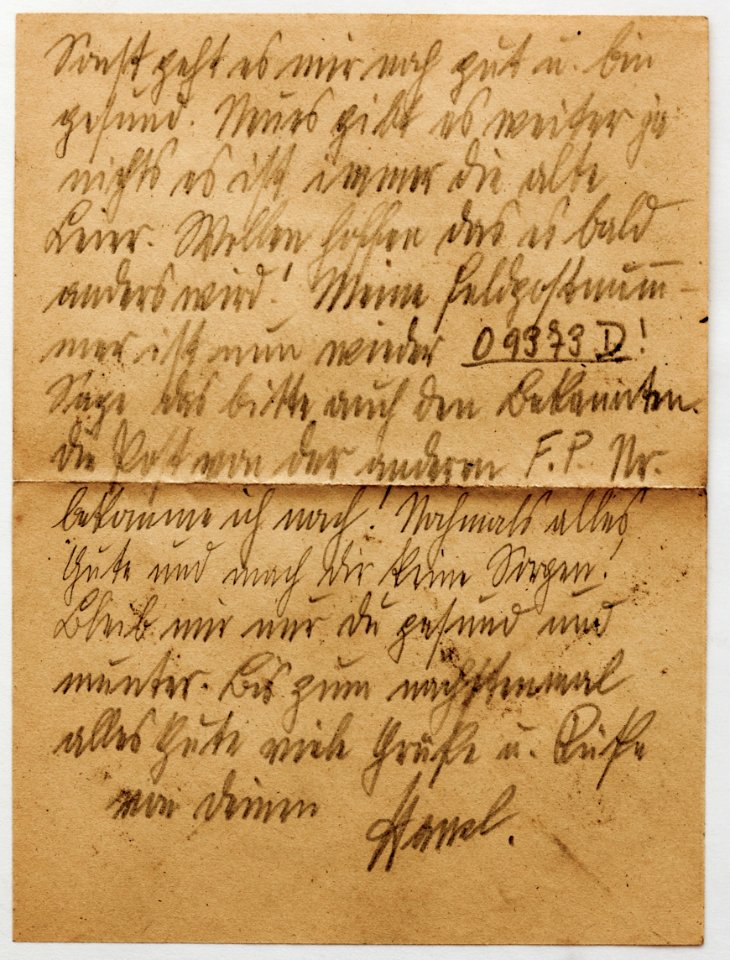 Sonst geht es mir noch gut u. bin
gesund. Neues gibt es weiter ja
nichts es ist immer die alte
Leier. Wollen hoffen das es bald
anders wird! Meine Feldpostnum-
mer ist nun wieder 09373 D!
Sage das bitte auch den Bekannten.
die Post von der andern F.P. Nr.
bekomme ich nach! Nochmals alles
Gute und mach dir keine Sorgen!
Bleib mir nur du gesund und
munter. Bis zum nächstenmal
alles Gute viele Grüße u. Küße
von deinen